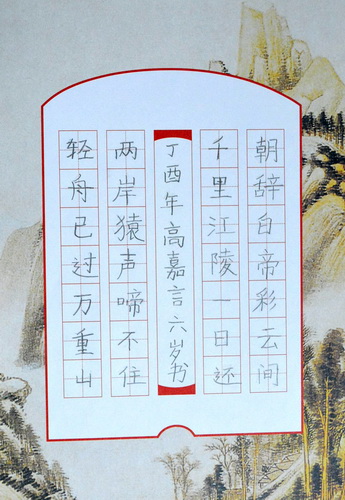 朝辞白帝彩云间
千里江陵一日还
丁酉年高嘉言六岁书
两岸猿声啼不住
轻舟已过万重山